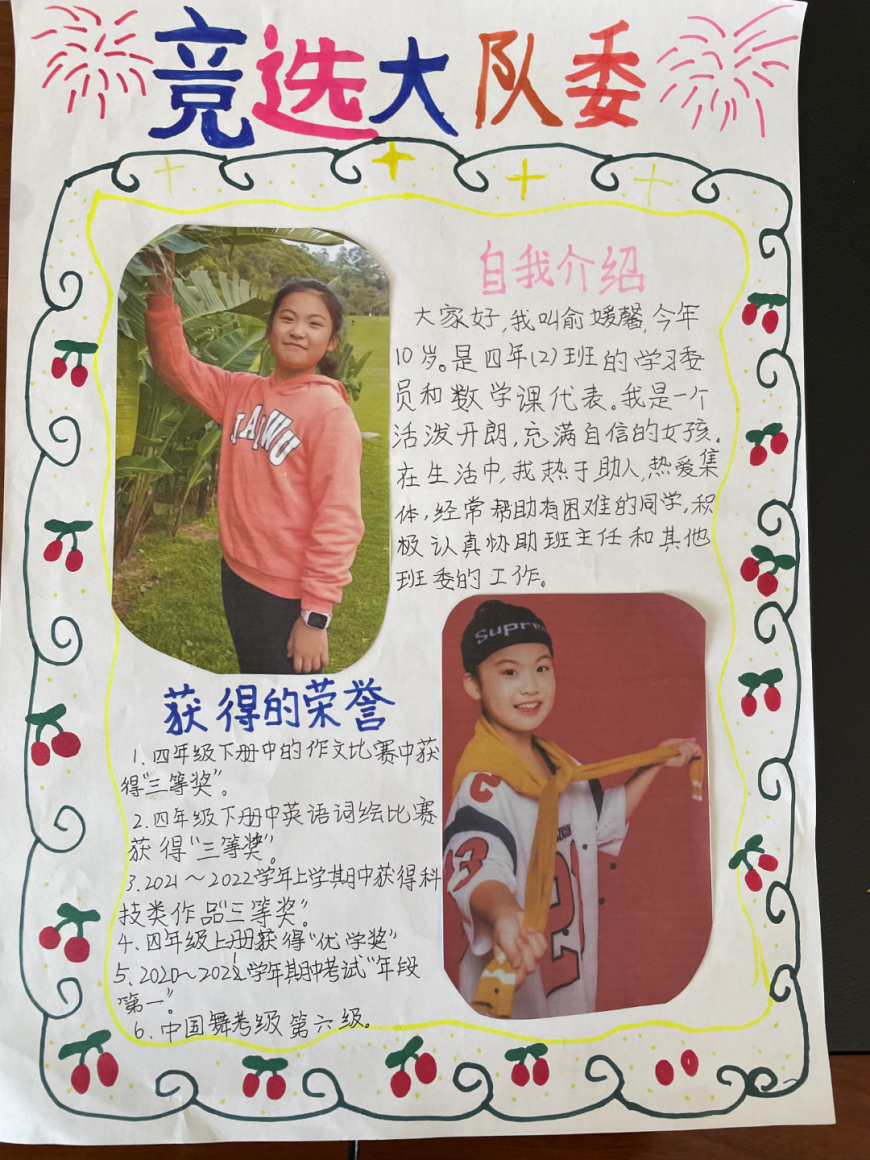 竞选大队委
自我介绍
大家好,我叫俞媛馨,今年
10岁。是四年(2)班的学习委
员和数学课代表。我是一个
活泼开朗,充满自信的女孩。
在生活中,我热于助人,热爱集
体,经常帮助有困难的同学,积
极认真协助班主任和其他
班委的工作。
JAIWU
Supre
获得的荣誉
1、四年级下册中的作文比赛中获
得“三等奖”。
2、四年级下册中英语词绘比赛
获得“三等奖”。
3、2021~2022学年上学期中获得科
技类作品“三等奖”。
4、四年级上册获得“优学奖”
5、2020~2021学年期中考试“年段
第一”。
6、中国舞考级第六级。